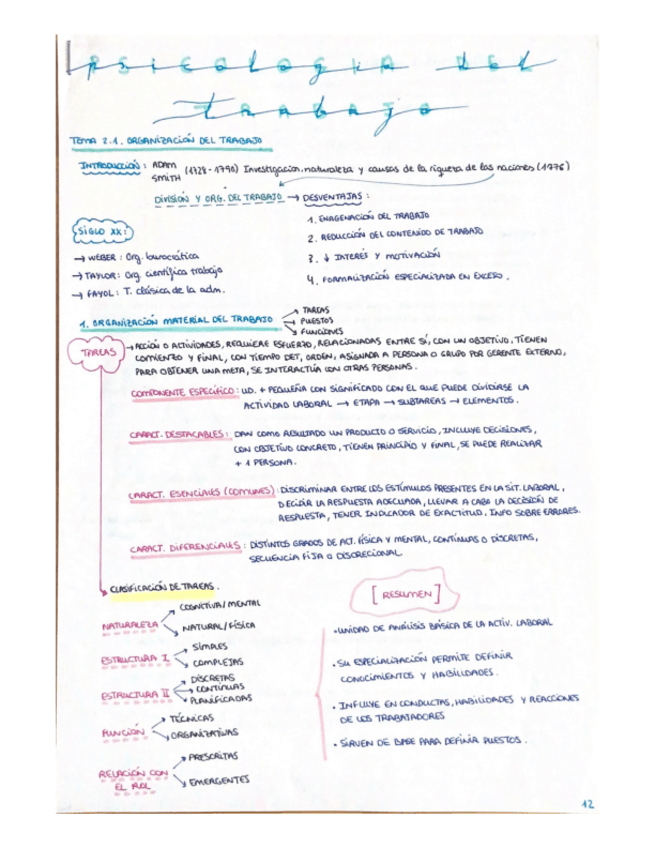 Psicologia del
trabajo
TEMA 2.1. ORGANIZACIÓN DEL TRABAJO
INTRODUCCIÓN: ADAM SMITH (1728-1790) Investigacion, naturaleza y causas de la riqueza de las naciones (1776)
DIVISIÓN Y ORG. DEL TRABAJO → DESVENTAJAS:
1. ENAGENACIÓN DEL TRABAJO
2. REDUCCIÓN DEL CONTENIDO DE TRABAJO
3. ↓ INTERÉS Y MOTIVACIÓN
4. FORMALIZACIÓN ESPECIALIZADA EN EXCESO.
SIGLO XX:
→ WEBER: Org. burocrática
→ TAYLOR: Org. científica trabajo
→ FAYOL: T. clásica de la adm.
1. ORGANIZACIÓN MATERIAL DEL TRABAJO
TAREAS
PUESTOS
FUNCIONES
TAREAS
→ ACCIÓN O ACTIVIDADES, REQUIERE ESFUERZO, RELACIONADAS ENTRE SÍ, CON UN OBJETIVO, TIENEN
COMIENZO Y FINAL, CON TIEMPO DET, ORDEN, ASIGNADA A PERSONA O GRUPO POR GERENTE EXTERNO,
PARA OBTENER UNA META, SE INTERACTÚA CON OTRAS PERSONAS.
COMPONENTE ESPECÍFICO: UD. + PEQUEÑA CON SIGNIFICADO CON EL QUE PUEDE DIVIDIRSE LA
ACTIVIDAD LABORAL → ETAPA → SUBTAREAS → ELEMENTOS.
CARACT. DESTACABLES: DAN COMO RESULTADO UN PRODUCTO O SERVICIO, INCLUYE DECISIONES,
CON OBJETIVO CONCRETO, TIENEN PRINCIPIO Y FINAL, SE PUEDE REALIZAR
+ 1 PERSONA.
CARACT. ESENCIALES (COMUNES): DISCRIMINAR ENTRE LOS ESTÍMULOS PRESENTES EN LA SIT. LABORAL,
DECIDIR LA RESPUESTA ADECUADA, LLEVAR A CABO LA DECISIÓN DE
RESPUESTA, TENER INDICADOR DE EXACTITUD, INFO SOBRE ERRORES.
CARACT. DIFERENCIALES: DISTINTOS GRADOS DE ACT. FÍSICA Y MENTAL, CONTINUAS O DISCRETAS,
SECUENCIA FIJA O DISCRECIONAL.
CLASIFICACIÓN DE TAREAS.
NATURALEZA
COGNITIVA/MENTAL
NATURAL/FÍSICA
ESTRUCTURA I
SIMPLES
COMPLEJAS
ESTRUCTURA II
DISCRETAS
CONTINUAS
PLANIFICADAS
FUNCIÓN
TÉCNICAS
ORGANIZATIVAS
RELACIÓN CON
EL ROL
PRESCRITAS
EMERGENTES
[RESUMEN]
• UNIDAD DE ANÁLISIS BÁSICA DE LA ACTIV. LABORAL
• SU ESPECIALIZACIÓN PERMITE DEFINIR
CONOCIMIENTOS Y HABILIDADES.
• INFLUYE EN CONDUCTAS, HABILIDADES Y REACCIONES
DE LOS TRABAJADORES
• SIRVEN DE BASE PARA DEFINIR PUESTOS.
12